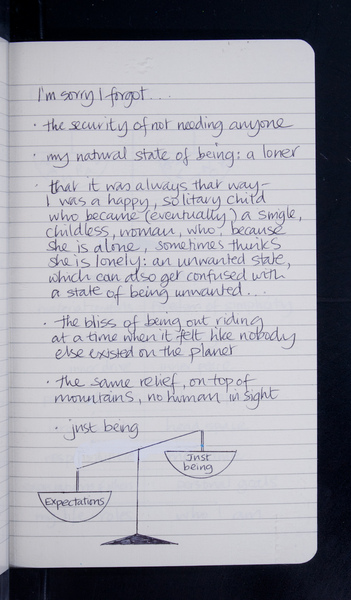 I'm sorry I forgot...
· the security of not needing anyone
· my natural state of being: a loner
· that it was always that way –
I was a happy, solitary child
who became (eventually) a single,
childless, woman, who, because
she is alone, sometimes thinks
she is lonely: an unwanted state,
which can also get confused with
a state of being unwanted...
· the bliss of being out riding
at a time when it felt like nobody
else existed on the planet
· the same relief, on top of
mountains, no human in sight
· just being
Just
being
Expectations